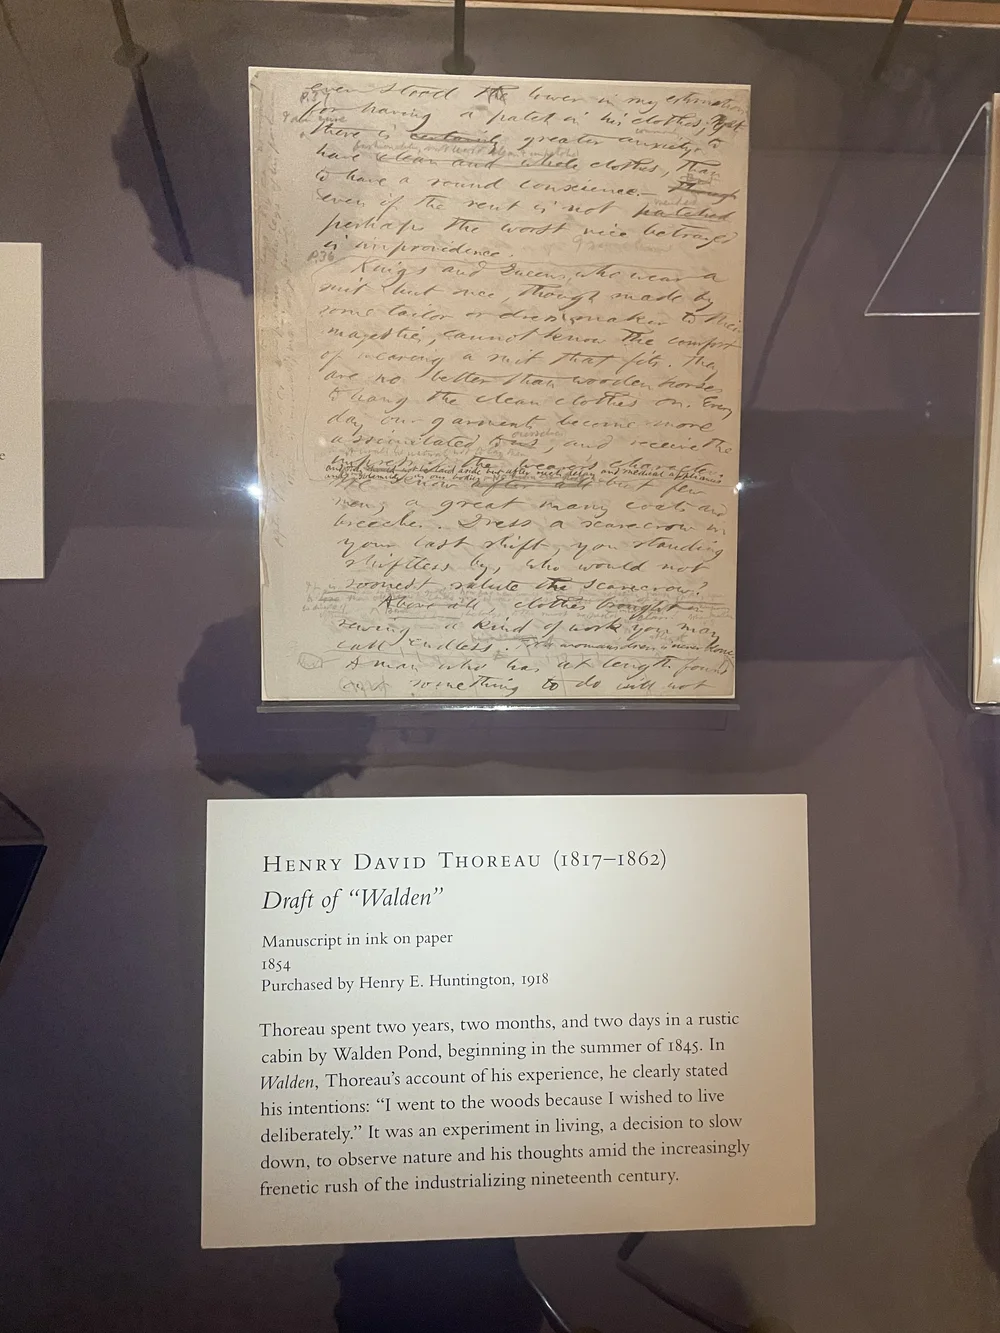 even stood the lower in my estimation
P.29
for having a patch in his clothes; yet
I am sure
there is certainly greater anxiety to
fashionable,
have clean and whole clothes, than
to have a sound conscience.— Though
But
even if the rent is not patched
mended
perhaps the worst vice betrayed
is improvidence.
P.36
Kings and Queens, who wear a
suit but once, though made by
some tailor or dressmaker to their
majesties, cannot know the comfort
of wearing a suit that fits. They
are no better than wooden horses
to hang the clean clothes on. Every
day our garments become more
assimilated to us, and receive the
ourselves
impress of the wearer's character.
laid aside but after such delay and medical appliances
and solemnity as our bodies
We know after all but few
men, a great many coats and
breeches. Dress a scarecrow in
your last shift, you standing
shiftless by, who would not
soonest salute the scarecrow?
Above all, clothes brought in
sewing a kind of work you may
call endless. woman's dress is never done
A man who has at length found
out something to do will not
HENRY DAVID THOREAU (1817–1862)
Draft of “Walden”
Manuscript in ink on paper
1854
Purchased by Henry E. Huntington, 1918
Thoreau spent two years, two months, and two days in a rustic
cabin by Walden Pond, beginning in the summer of 1845. In
Walden, Thoreau's account of his experience, he clearly stated
his intentions: “I went to the woods because I wished to live
deliberately.” It was an experiment in living, a decision to slow
down, to observe nature and his thoughts amid the increasingly
frenetic rush of the industrializing nineteenth century.
e